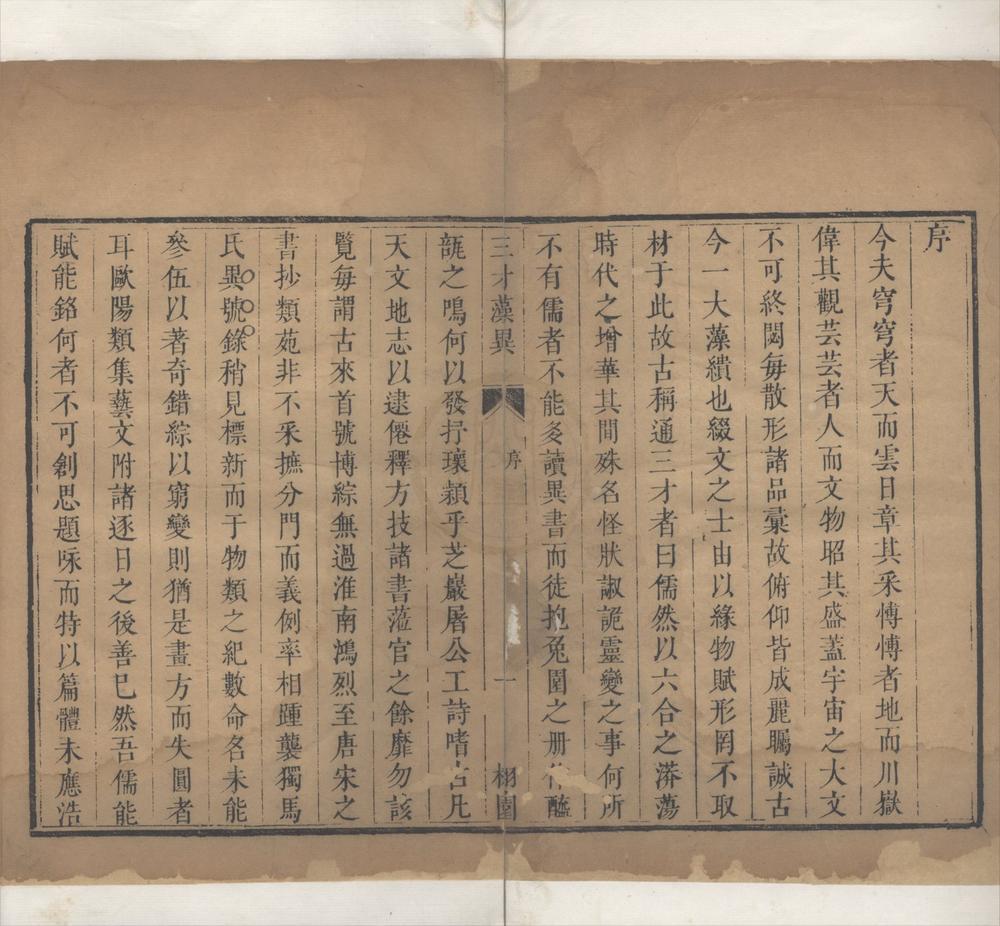 序
今夫穹穹者天而雲日章其采愽愽者地而川嶽
偉其觀芸芸者人而文物昭其盛蓋宇宙之大文
不可終閟每散形諸品彚故俯仰皆成麗矚誠古
今一大藻繢也綴文之士由以緣物賦形罔不取
材于此故古稱通三才者曰儒然以六合之漭蕩
時代之增華其間殊名怪狀諔詭靈變之事何所
不有儒者不能多讀異書而徒抱兔園之册作醯
三才藻異
序
一
栩園
瓿之鳴何以發抒瓌穎乎芝巖屠公工詩嗜古凡
天文地志以逮僊釋方技諸書蒞官之餘靡勿該
覽每謂古來首號博綜無過淮南鴻烈至唐宋之
書抄類苑非不采摭分門而義例率相踵襲獨馬
氏異號錄稍見標新而于物類之紀數命名未能
參伍以著奇錯綜以窮變則猶是畫方而失圓者
耳歐陽類集藝文附諸逐日之後善已然吾儒能
賦能銘何者不可創思題咏而特以篇體未應浩